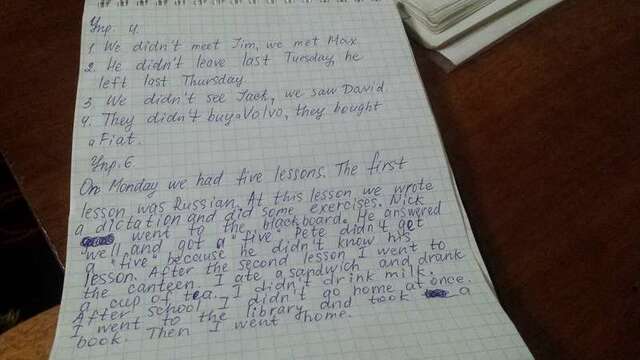 Упр. 4.
1. We didn't meet Jim, we met Max
2. He didn't leave last Tuesday, he
left last Thursday
3. We didn't see Jack, we saw David
4. They didn't buy a Volvo, they bought
a Fiat.
Упр. 6.
On Monday we had five lessons. The first
lesson was Russian. At this lesson we wrote
a dictation and did some exercises. Nick
went to the blackboard. He answered
well and got a "five". Pete didn't get
a "five" because he didn't know his
lesson. After the second lesson I went to
the canteen. I ate a sandwich and drank
a cup of tea. I didn't drink milk.
After school I didn't go home at once.
I went to the library and took a
book. Then I went home.